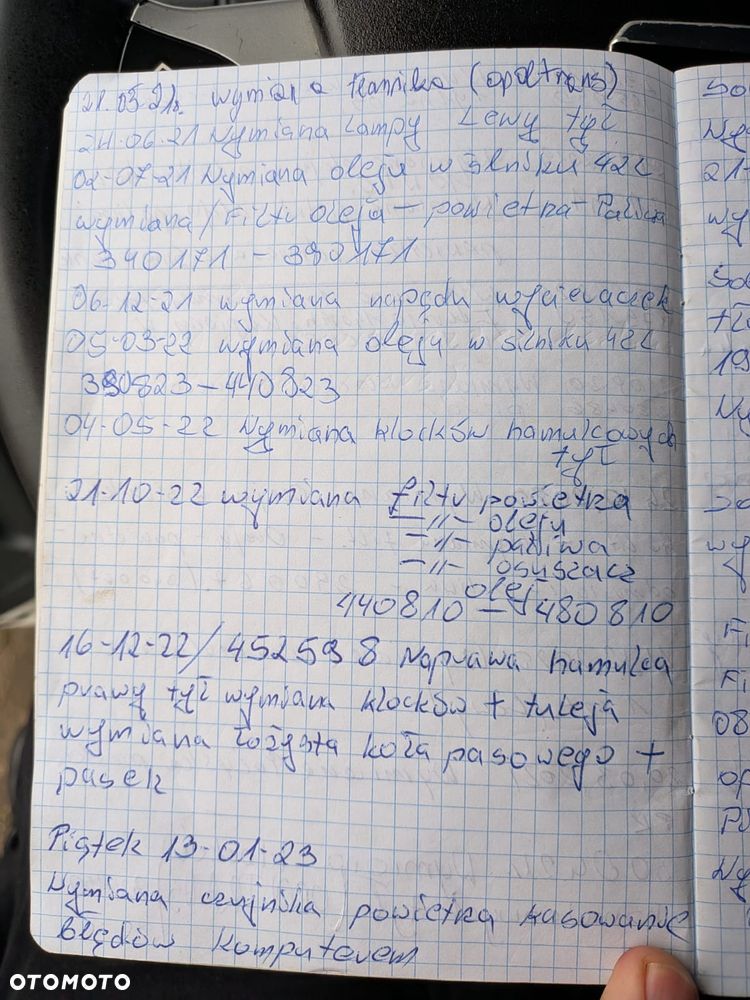 21.05.21r. wymiana (opoltrans)
24.06.21 Wymiana Lampy Lewy tył
02-07-21 Wymiana oleju w silniku 42L
wymiana/Filtr oleja - powietrza - Paliwa
340171 - 390171
06-12-21 wymiana napędu wycieraczek
05-03-22 wymiana oleju w silniku 42L
390823 - 440823
04-05-22 Wymiana klocków hamulcowych
tył
21-10-22 wymiana filtr powietrza
-"- oleju
-"- paliwa
-"- osuszacz
olej
440810 - 480810
16-12-22/452598 Naprawa hamulca
prawy tył wymiana klocków + tuleja
wymiana łożysta koła pasowego +
pasek
Piątek 13-01-23
Wymiana czujnika powietrza kasowanie
błędów komputerem
So
Wy
21-
wy
So
19
Wy
wy
Fi
Fi
08
op
Pi
Wy
OTOMOTO